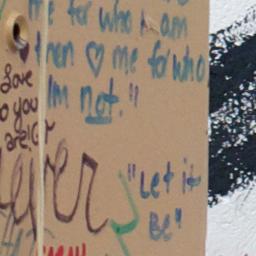 me for who I am
then ♡ me for who
I'm not."
Love
o you
are!
ever
"Let it
Be"